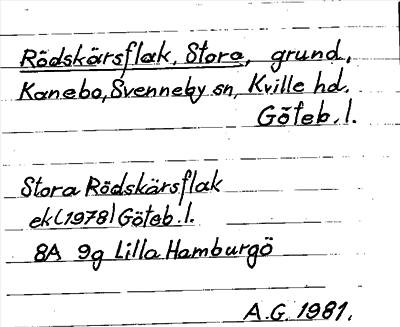 Rödskärsflak, Stora, grund,
Kanebo, Svenneby sn, Kville hd.
Göteb. l.
Stora Rödskärsflak
ek (1978) Göteb. l.
8A 9g Lilla Hamburgö
A.G. 1981.